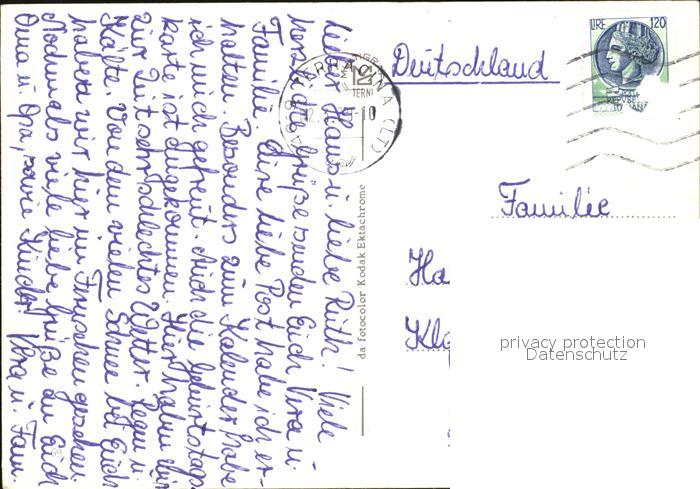 Lieber Klaus u. liebe Ruth! Viele
herzliche Grüße senden Euch Vera u.
Familie. Eure liebe Post habe ich er-
halten. Besonders zum Kalender habe
ich mich gefreut. Auch die Geburtstags
karte ist angekommen. Hier haben wir
zur Zeit sehr schlechtes Wetter. Regen u.
Kälte. Von dem vielen Schnee bei Euch
haben wir hier im Fernsehen gesehen.
Nochmals viele liebe Grüße an Euch
Oma u. Opa, sowie Kinder. Vera u. Fam.
da fotocolor Kodak Ektachrome
TERRACINA (LT)
12
TERNI
Deutschland
LIRE 120
Familie
Ha
Klg
privacy protection
Datenschutz